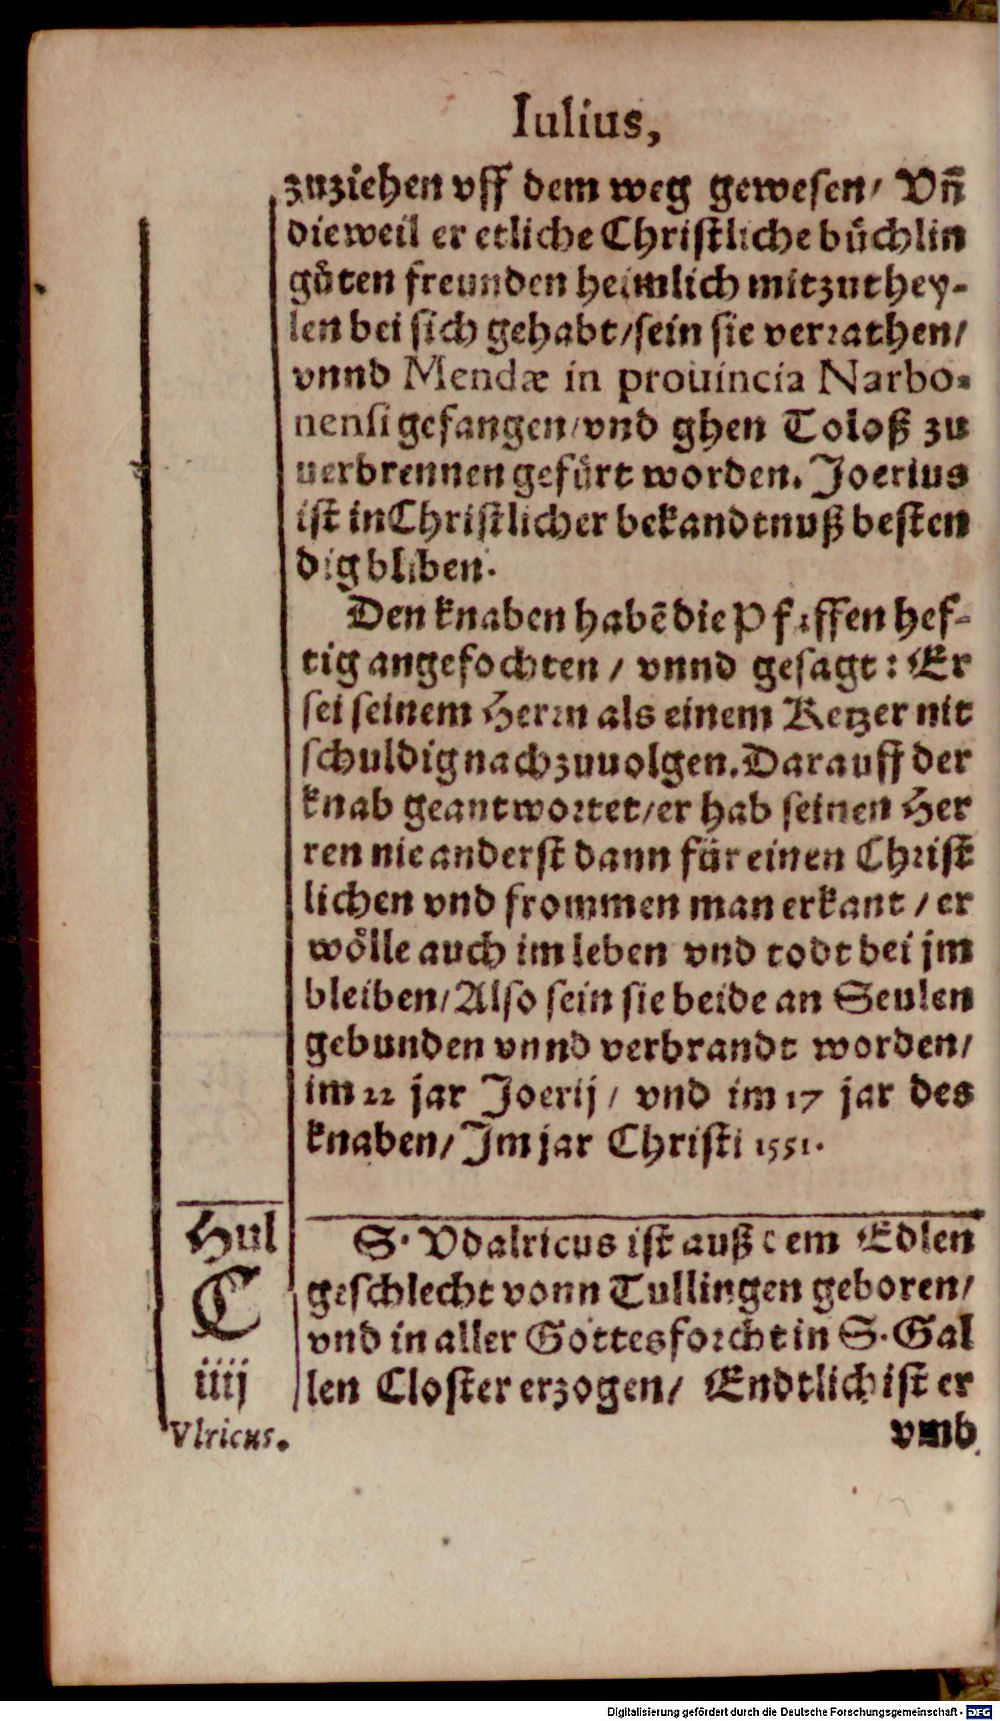 Iulius,
zuziehen vff dem weg gewesen/ Vñ
dieweil er etliche Christliche bůchlin
gůten freunden heimlich mitzuthey-
len bei sich gehabt/sein sie verrathen/
vnnd Mendæ in prouincia Narbo-
nensi gefangen/vnd ghen Toloß zu
uerbrennen gefůrt worden. Joerius
ist in Christlicher bekandtnuß besten
dig bliben.
Den knaben habē die Pfaffen hef-
tig angefochten / vnnd gesagt: Er
sei seinem Herrn als einem Ketzer nit
schuldig nachzuuolgen. Darauff der
knab geantwortet/er hab seinen Her
ren nie anderst dann für einen Christ
lichen vnd frommen man erkant / er
wölle auch im leben vnd todt bei jm
bleiben/Also sein sie beide an Seulen
gebunden vnnd verbrandt worden/
im 22 jar Joerij / vnd im 17 jar des
knaben/Im jar Christi 1551.
Hul
C
iiij
Vlricus.
S. Vdalricus ist auß dem Edlen
geschlecht vonn Tullingen geboren/
vnd in aller Gottesforcht in S. Gal
len Closter erzogen/ Endtlich ist er
vmb
Digitalisierung gefördert durch die Deutsche Forschungsgemeinschaft - DFG